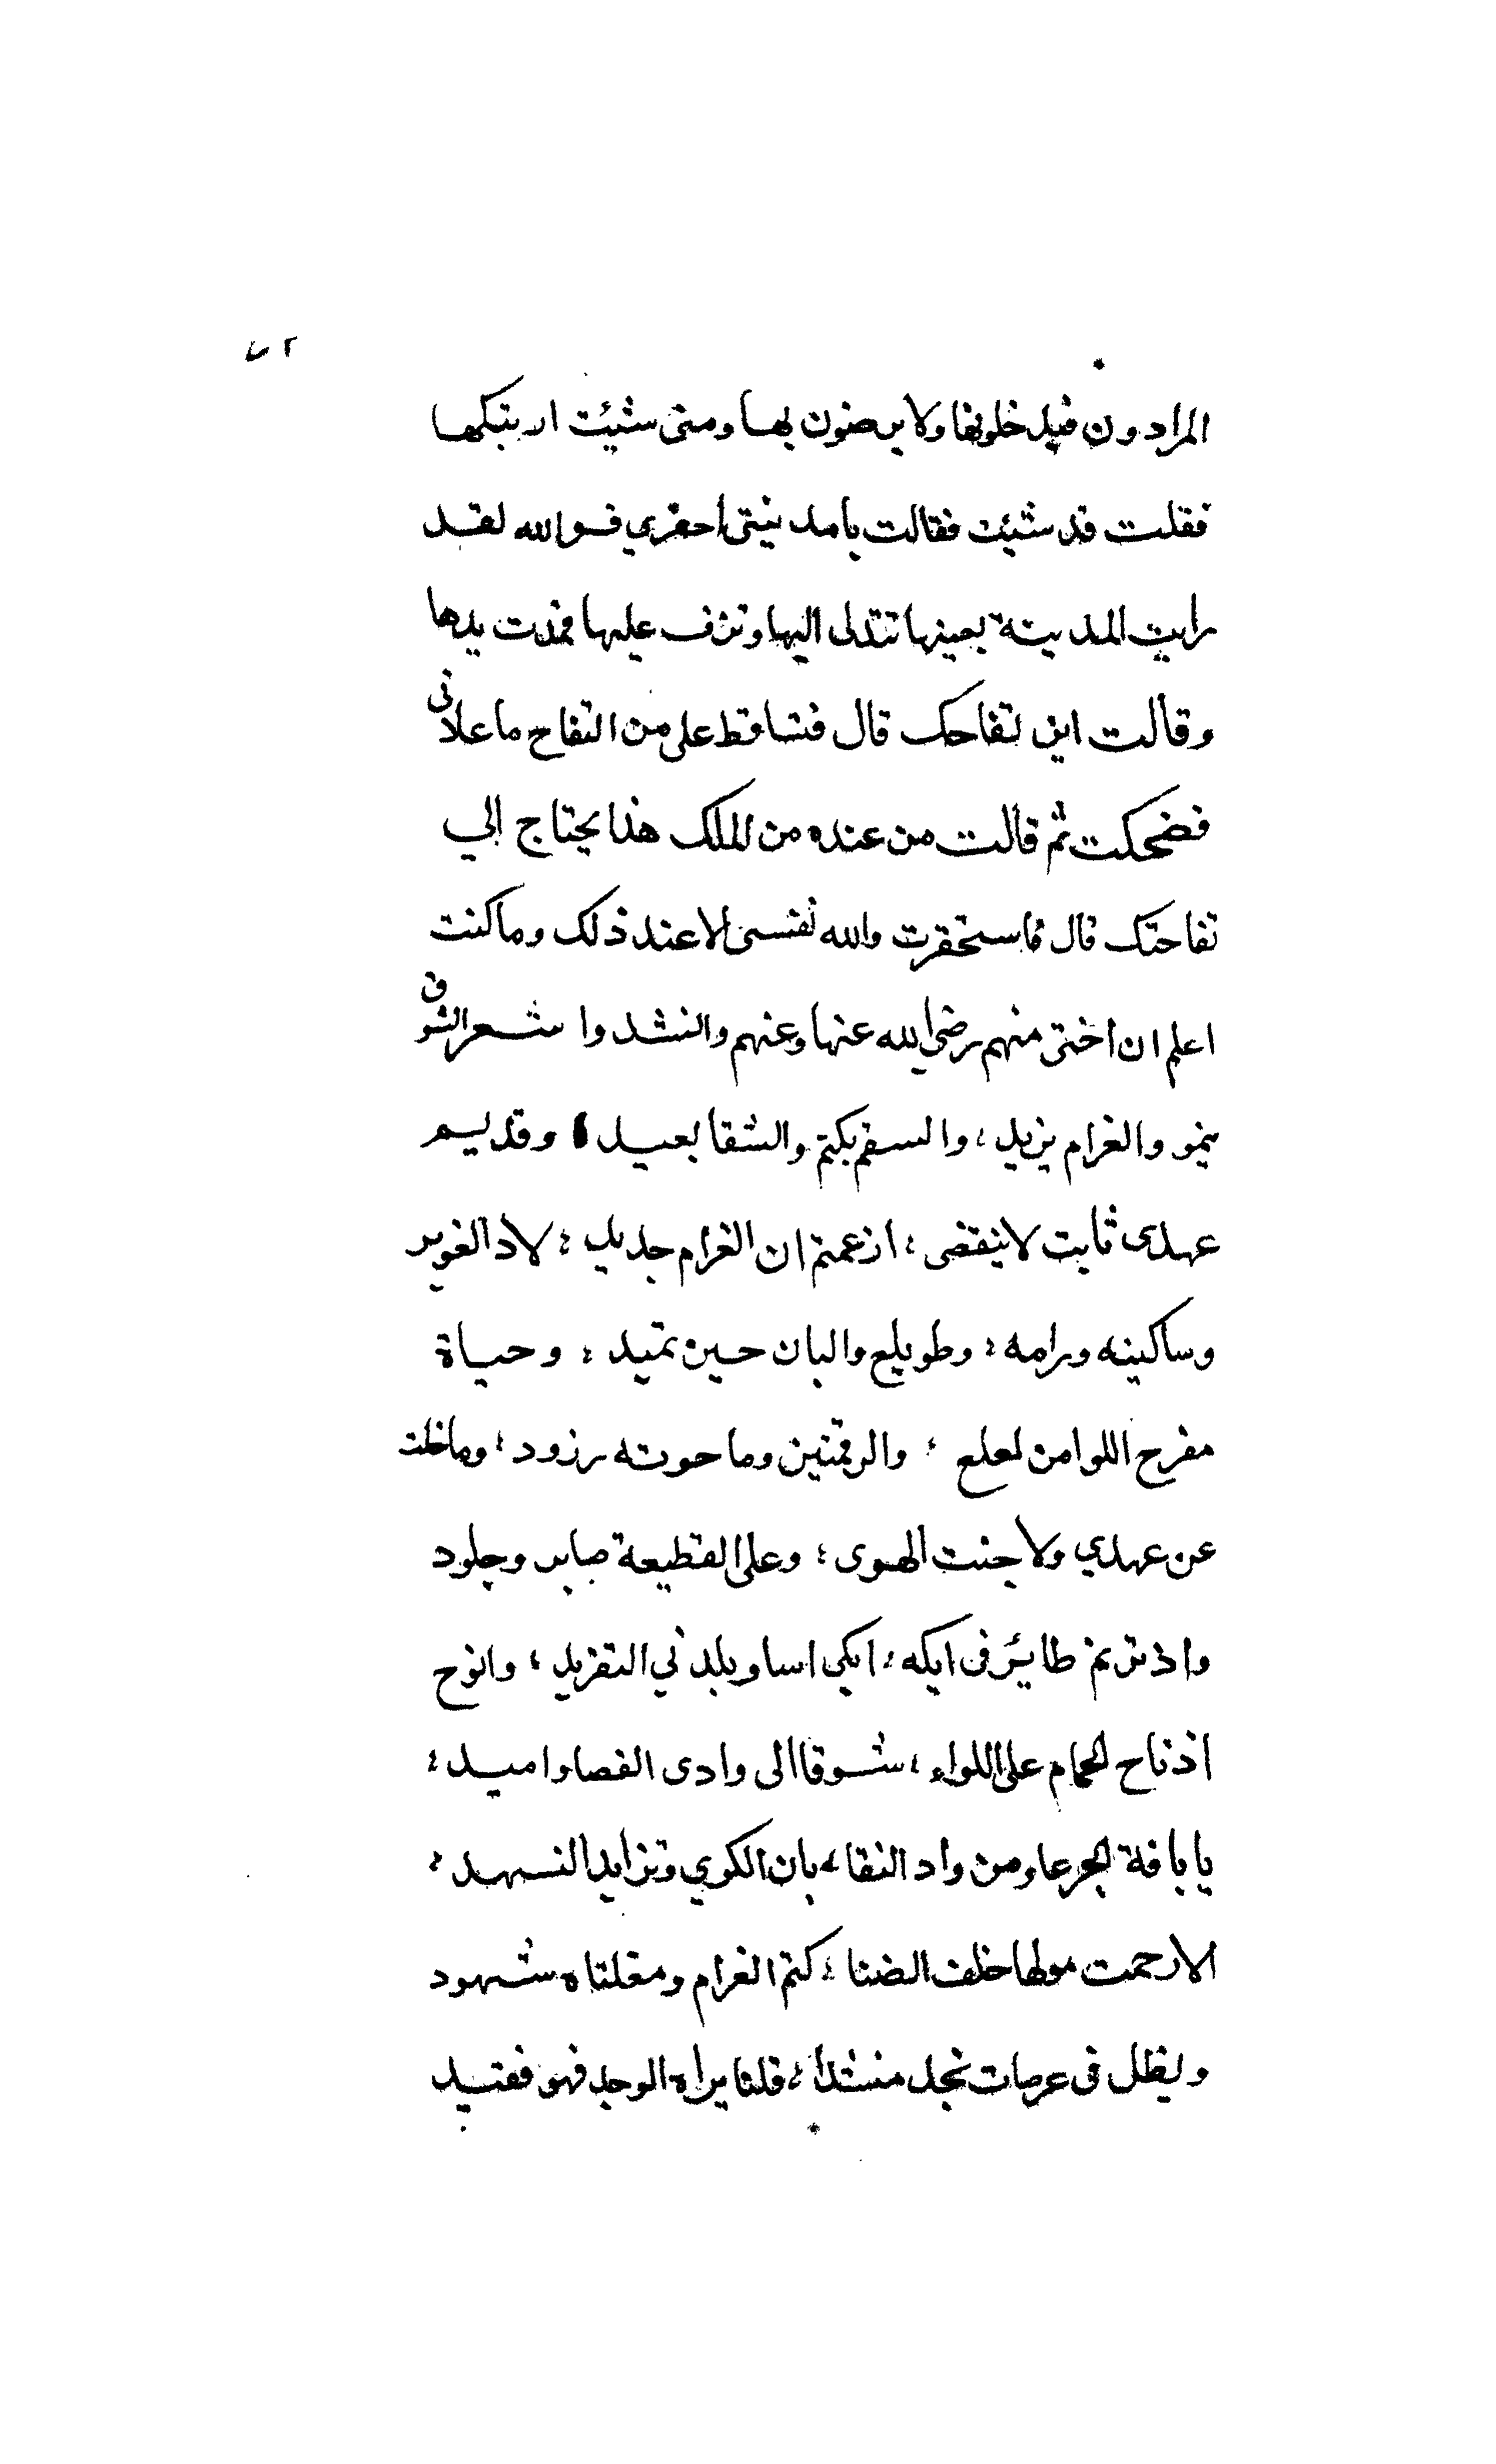 المرادون فيدخلونها ولا يرضون بها ومتى شئت اريتكها
فقلت قد شئت فقالت يا مدينتي احضري فوالله لقد
رايت المدينة بعينها تتدلى اليها وتزف عليها فمدت يدها
وقالت اين تفاحك قال فتساقط على من التفاح ما علاني
فضحكت ثم قالت من عنده من الملك هذا يحتاج الي
تفاحتك قال فاستحقرت والله نفسى الا عند ذلك وما كنت
اعلم ان اختى منهم رضي الله عنها وعنهم وانشدوا شعر الشوق
ينمو والغرام يزيد ، والسقم يكتم والشقا بعيد ، وقديم
عهدى ثابت لا ينقضى ، ازعمتم ان الغرام جديد ؛ لاد الغوير
وساكينه ورامه ؛ وطويلع والبان حين تميد ؛ وحياة
مفرح اللوا من لعلع ، والرقمتين وما حوته زرود ؛ وما خلت
عن عهدي ولا جنت الهوى ؛ وعلى القطيعة صابر وجلود
واذ ترنم طاير فى ايكه ، ابكى اسا ويلذ لي التغريد ؛ وانوح
اذ ناح الحمام على اللواء ، شوقا الى وادى الغضا واميد ؛
يا بانة الجرعاء ومن واد النقا ، بان الكري وتزايد التسهيد ؛
الا رحمت مولها خلف الضنا ؛ كتم الغرام ومقلتاه شهود
ويظل فى عرصات نجد منشدا ؛ قلبا براه الوجد فهو فقيد